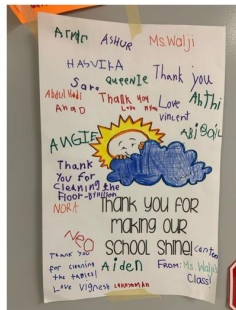 Arnav ASHUR Ms. Walji
HASVIKA
Queenie Thank you
Sara
Abdul Hadi Thank you Love Abthi
Anad Love vincent
ABiGaiL
ANGIE
Thank
You For
Cleaning the
Floor
NORA
Thank you for
making our
school shine!
Neo
Thank you
for cleaning Aiden
the tables!
Love Vignesh
FROM: Ms. Walji's
Class!